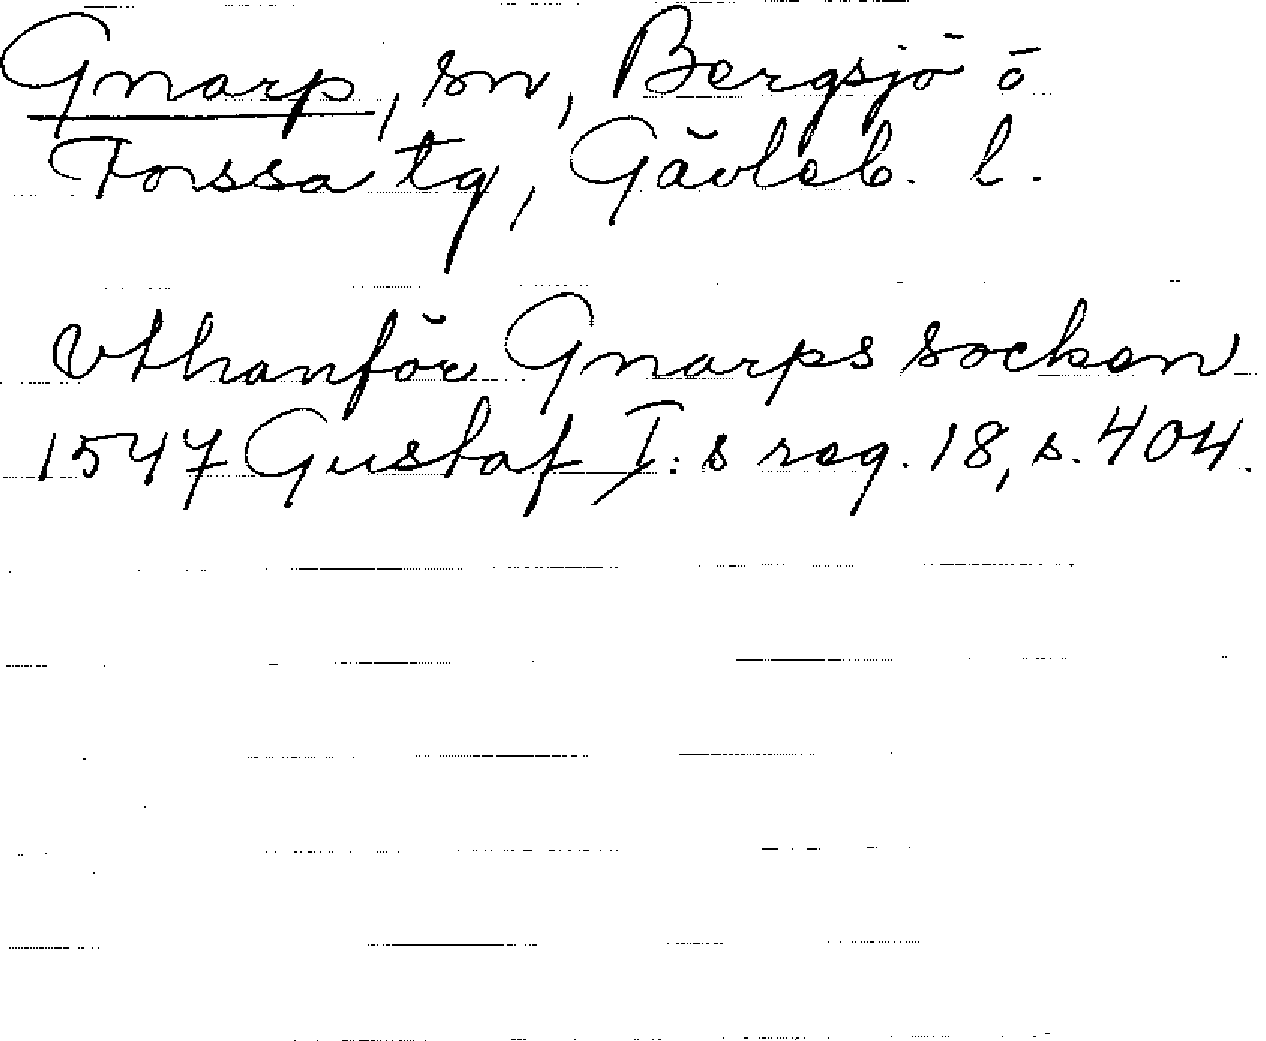 Gnarp, sn, Bergsjö o
Forssa tg, Gävleb. l.
Vthanför Gnarps socken
1547 Gustaf I:s reg. 18, s. 404.